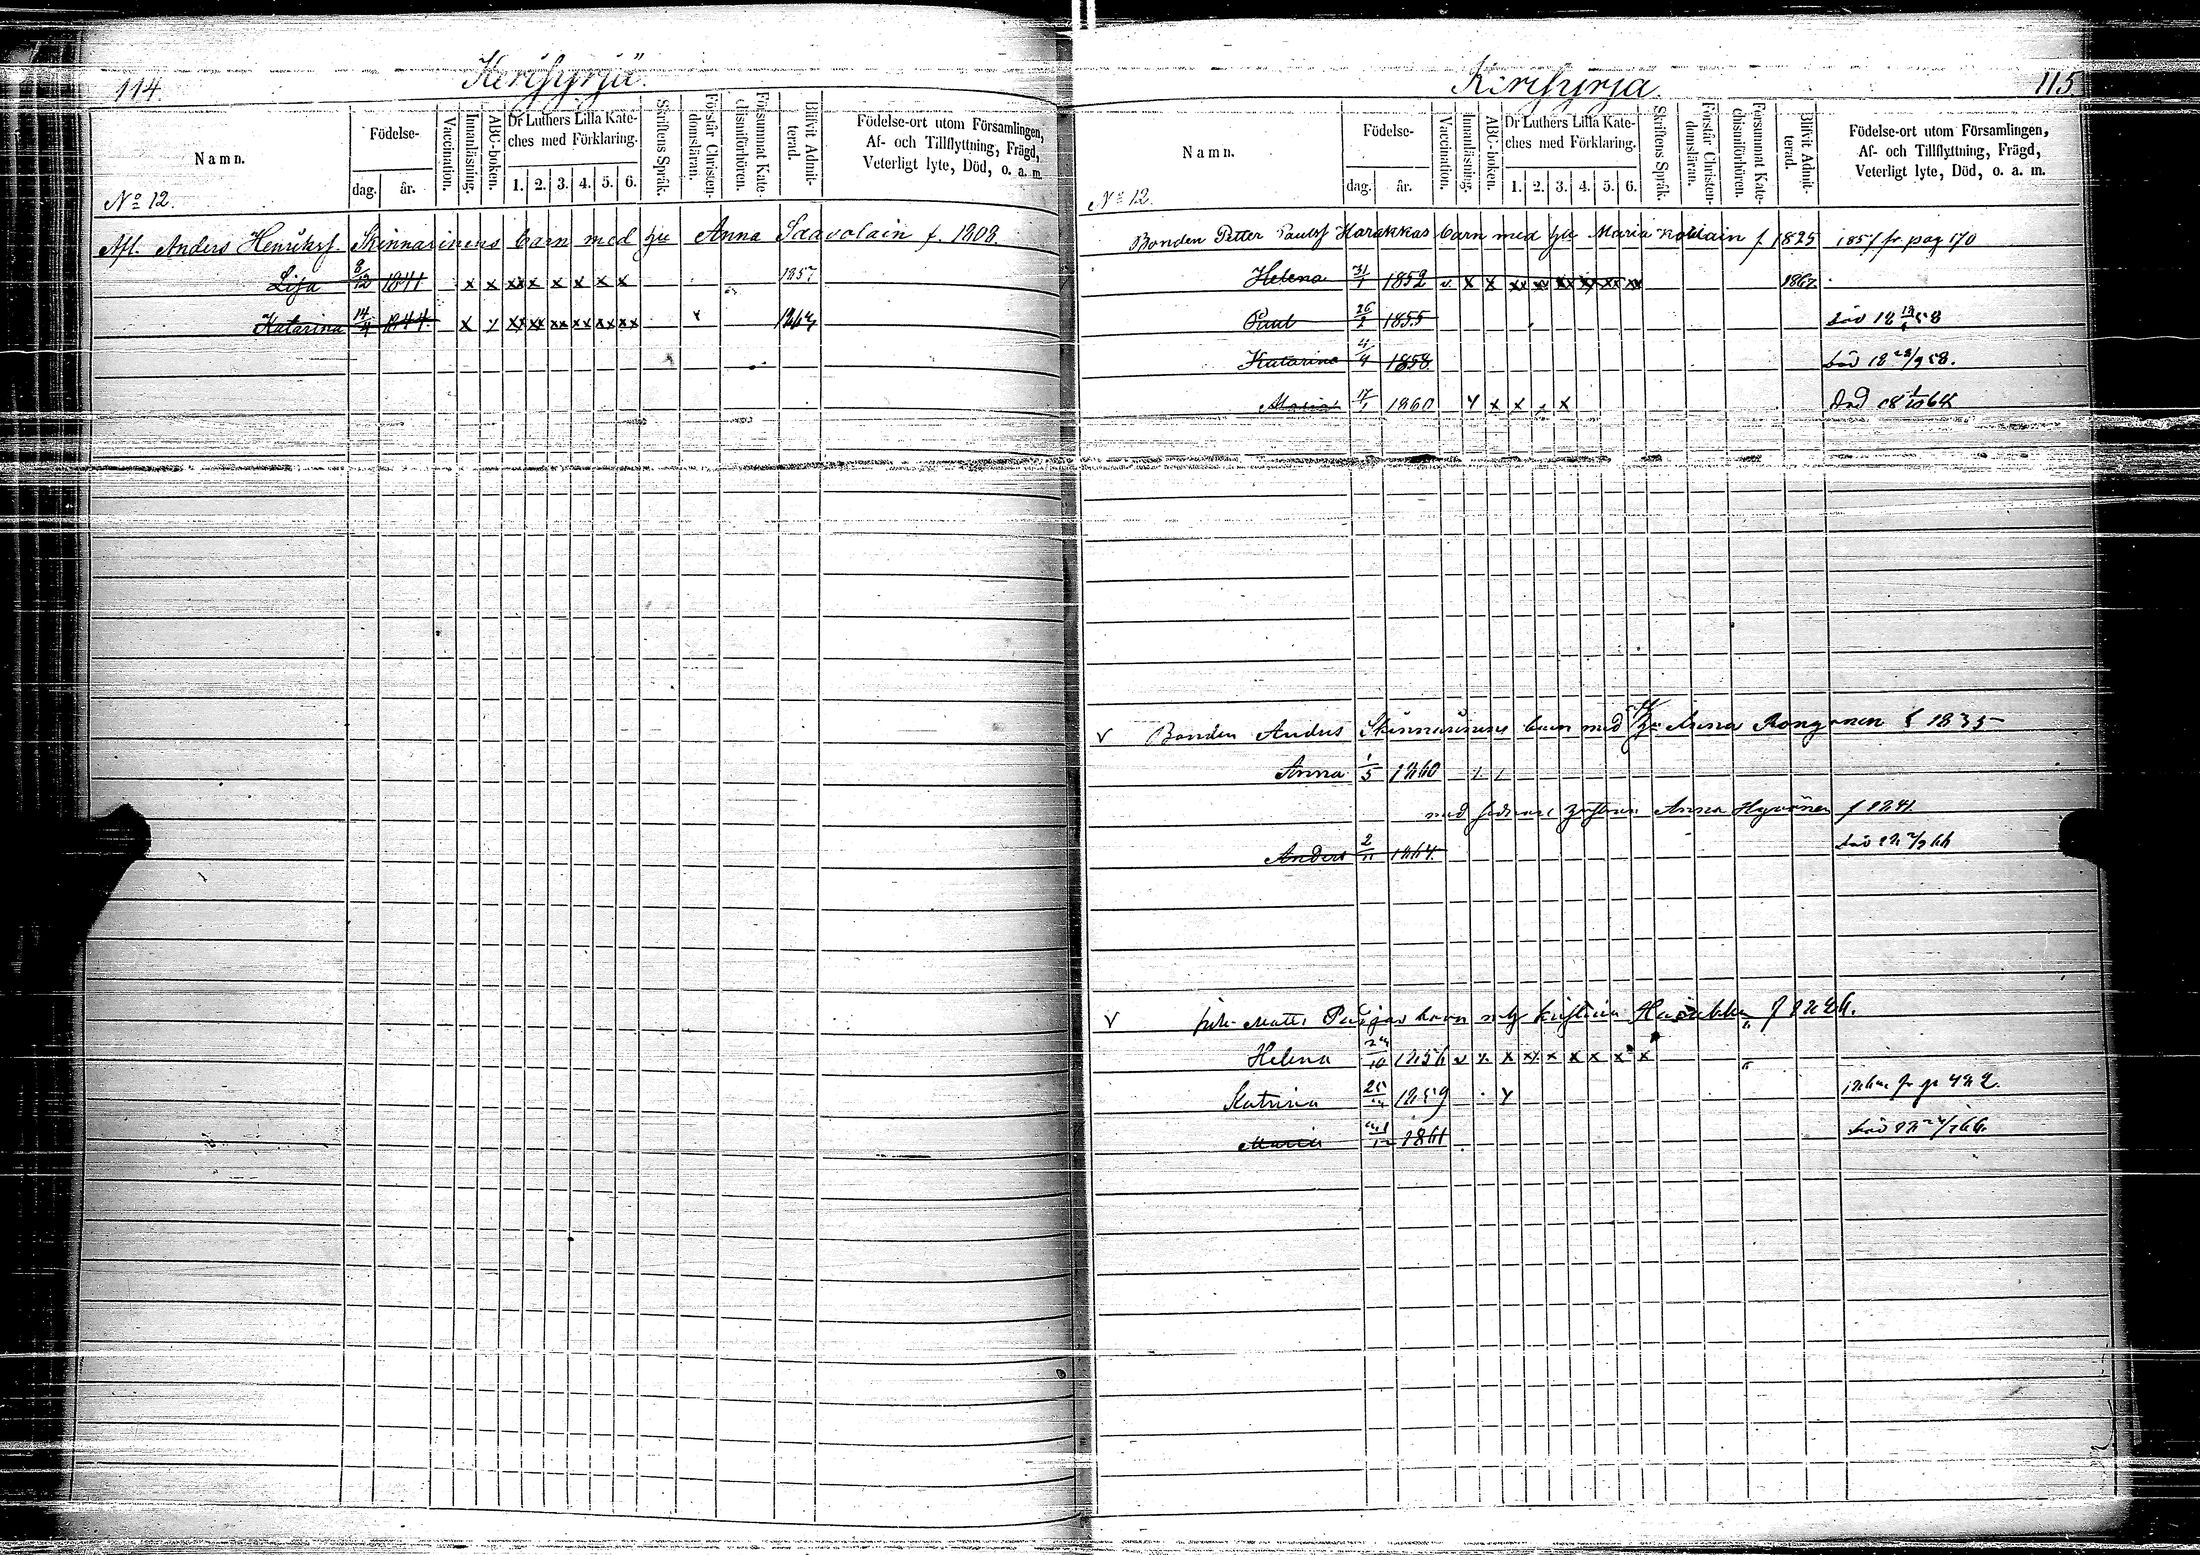 114.
Kerisyrjä.
Namn.
Födelse-
dag.
år.
Vaccination.
Innanläsning.
ABC-boken.
Dr Luthers Lilla Kate-
ches med Förklaring.
1. 2. 3. 4. 5. 6.
Skriftens Språk.
Förstår Christen-
domsläran.
Försummat Kate-
chismiförhören.
Blifvit Admit-
terad.
Födelse-ort utom Församlingen,
Af- och Tillflyttning, Frägd,
Veterligt lyte, Död, o. a. m.
No 12.
Afl. Anders Henriksf. Skinnarinens barn med hu Anna Saavolain f. 1808.
Lisa 8/12 1841 x x xx x x x x x 1857
Katarina 14/4 1844 x y xx xx xx xx xx xx x 1864
Kerisyrjä.
115
Namn.
Födelse-
dag.
år.
Vaccination.
Innanläsning.
ABC-boken.
Dr Luthers Lilla Kate-
ches med Förklaring.
1. 2. 3. 4. 5. 6.
Skriftens Språk.
Förstår Christen-
domsläran.
Försummat Kate-
chismiförhören.
Blifvit Admit-
terad.
Födelse-ort utom Församlingen,
Af- och Tillflyttning, Frägd,
Veterligt lyte, Död, o. a. m.
No 12.
Bonden Petter Paulsf Harakkas barn med hu Maria f. 1825 1857 fr. pag 170
Helena 31/1 1852 v x x xx xx xx xx xx xx 1867
Paul 26/1 1855 död 18 58
Katarina 4/4 1858 död 18 28/9 58.
Maria 17/1 1860 y x x x Död 18 1/10 64
v Bonden Anders Skinnarinens barn med hu Anna Rongonen f 1835
Anna 1/5 1860
med sednare hustrun Anna Hyvönen f 1841
Anders 2/11 1864 död 18 66
v Matts barn Kristina Harakka f 1826.
Helena 24/10 1856 v x x x x x x x x
Katrina 25 1859 y fr p 482.
Maria 1861 död 18 66.